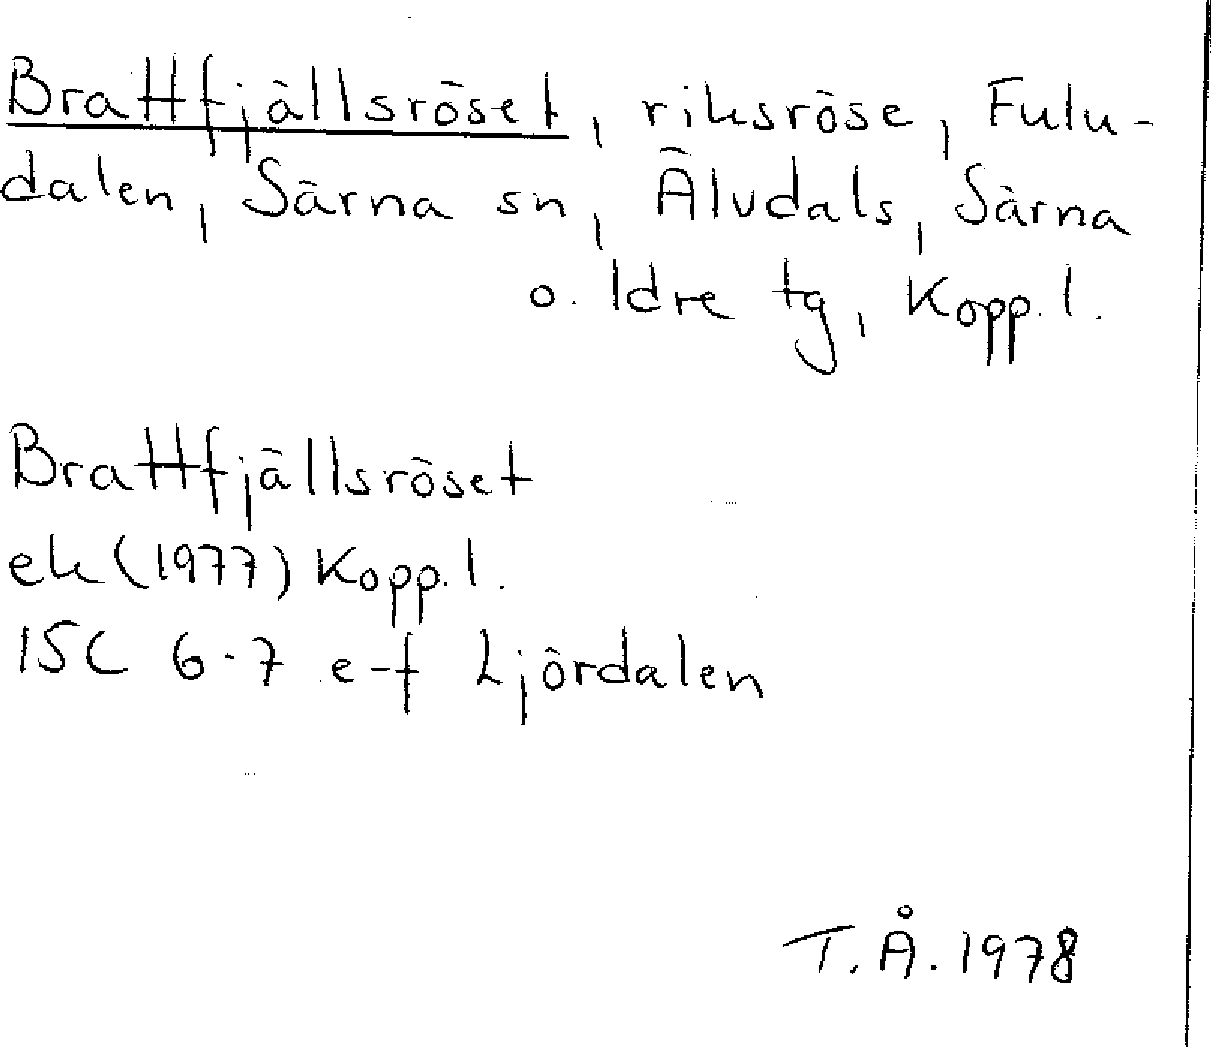 Brattfjällsröset, riksröse, Fulu-
dalen, Särna sn, Älvdals, Särna
o. Idre tg, Kopp. l.
Brattfjällsröset
ek (1977) Kopp. l.
15C 6-7 e-f Ljördalen
T. Å. 1978